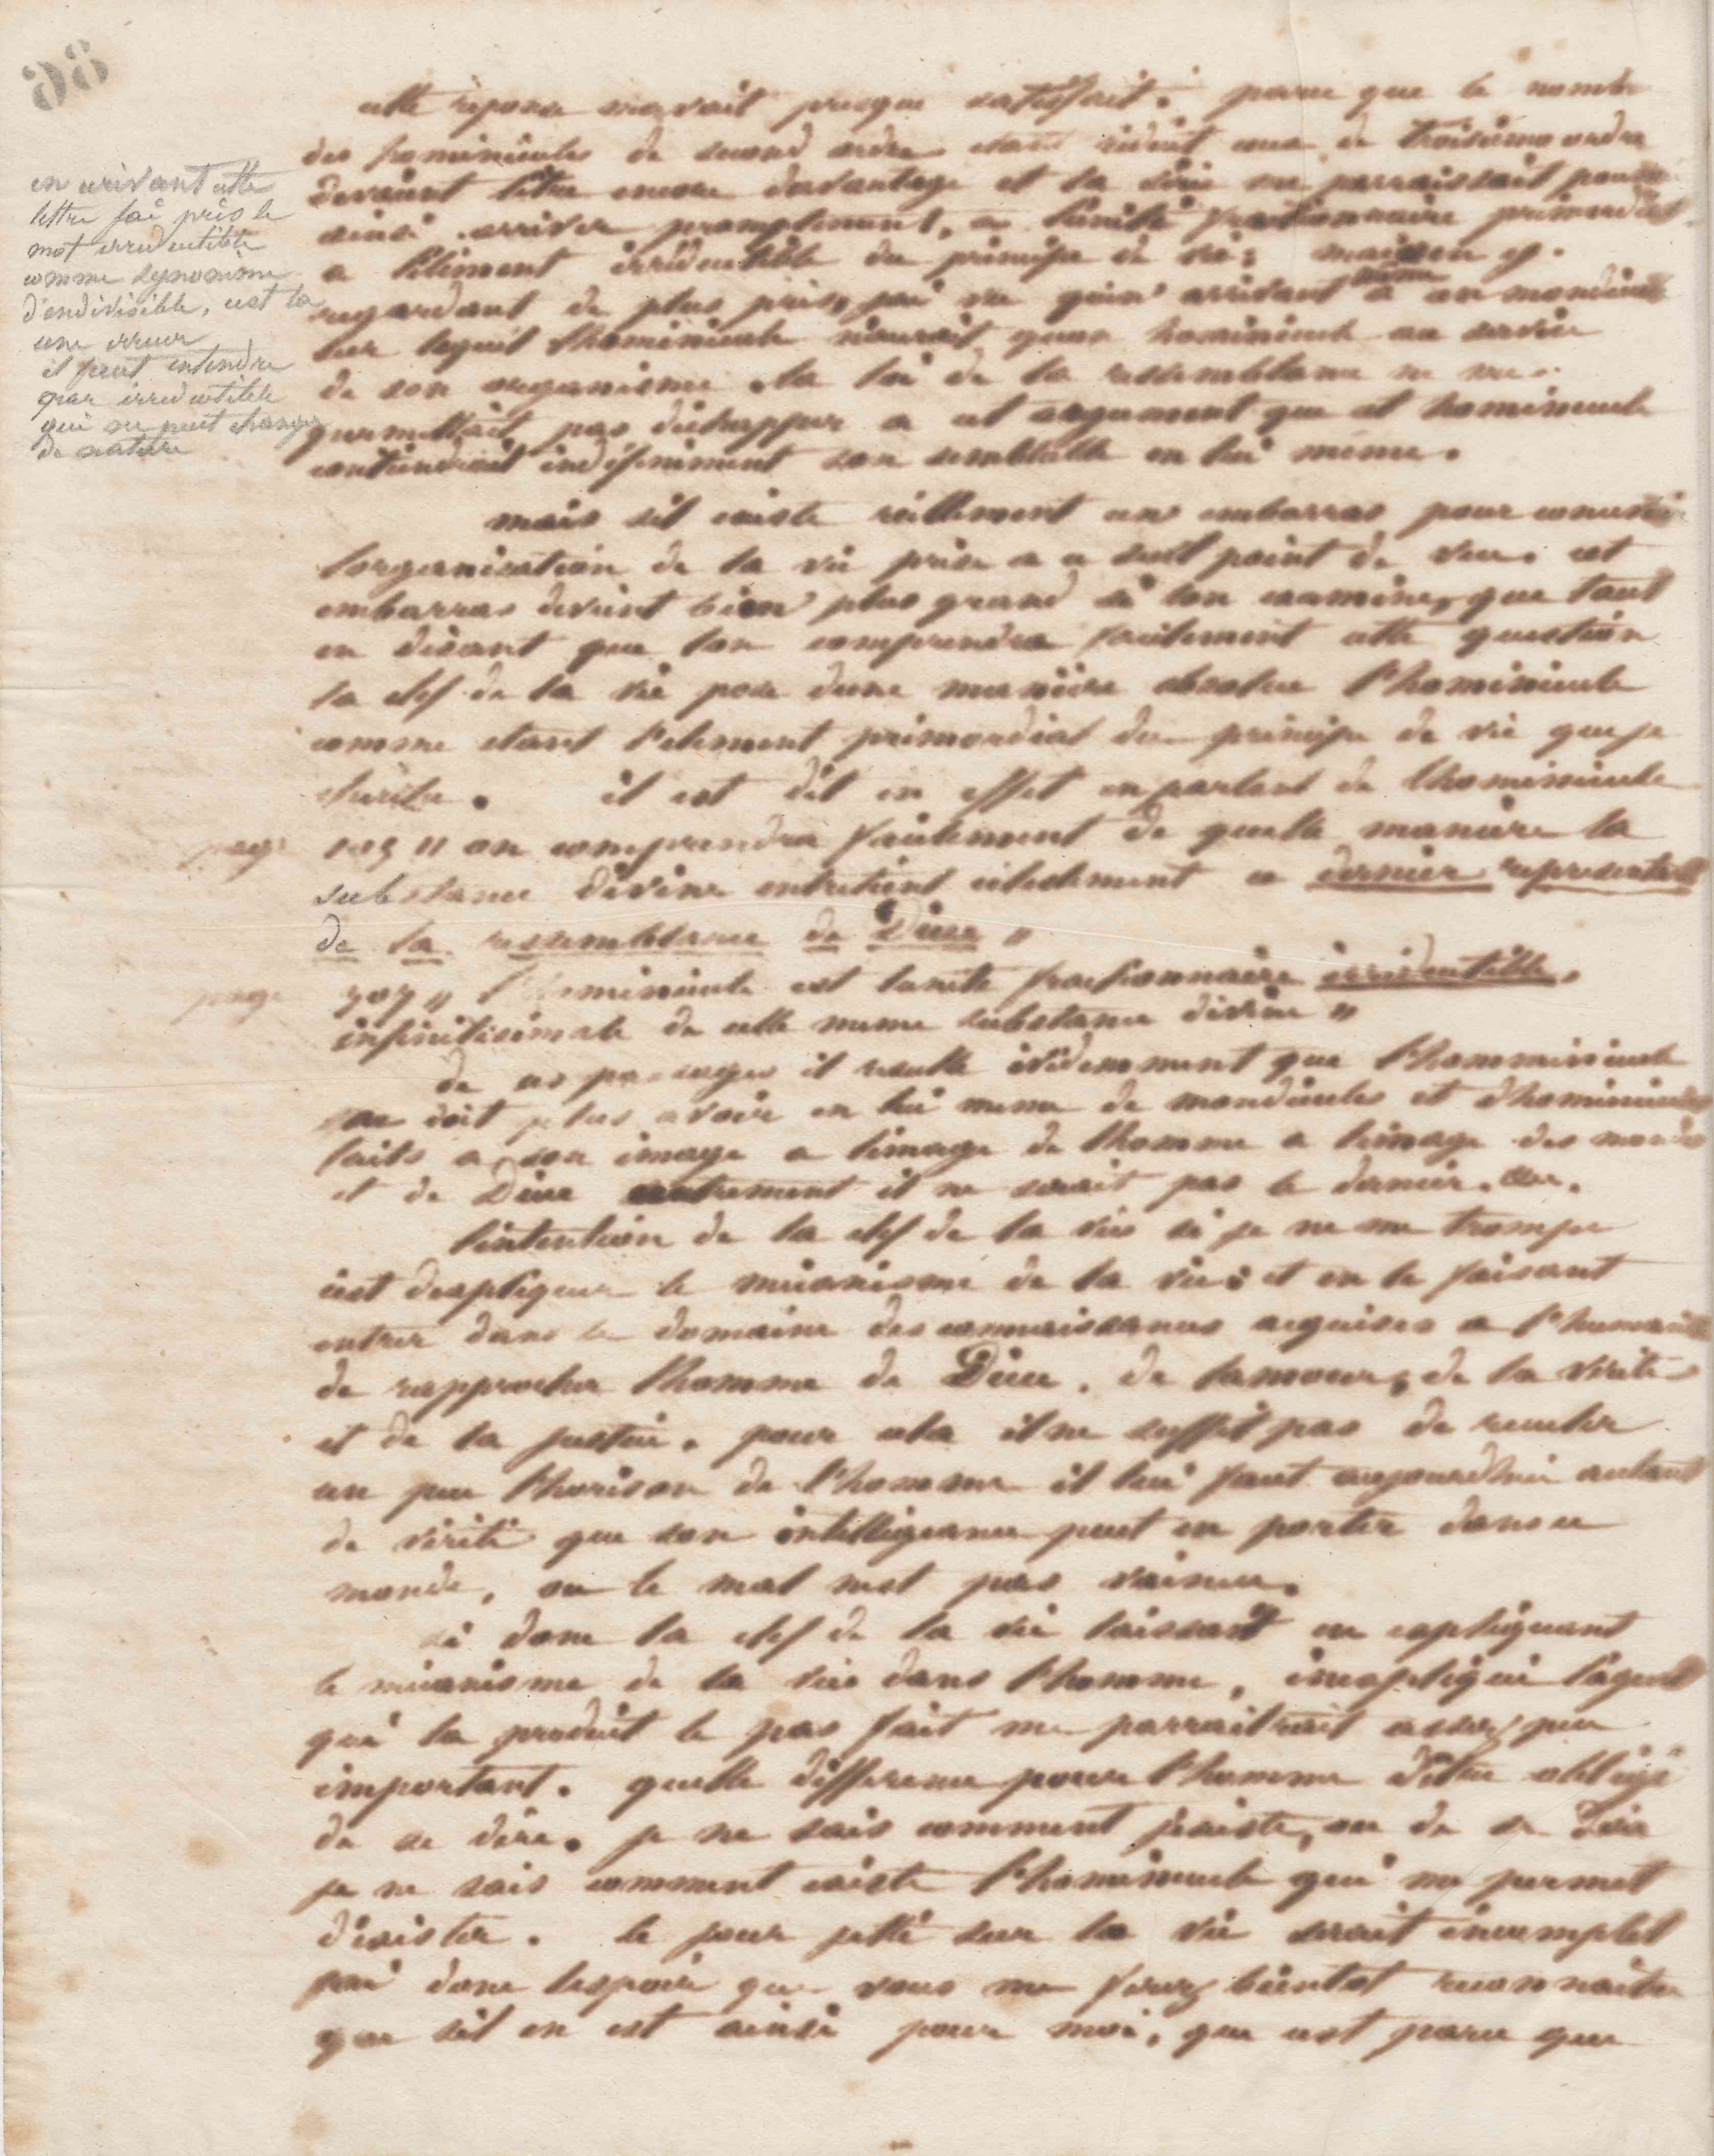 98
en écrivant cette
lettre j'ai pris le
mot irreductible
comme synonime
d'indivisible, c'est la
une erreur
il faut entendre
par irreductible
qui ne peut changer
de nature
cette réponse m'avait presque satisfait. parce que le nombre
des hominicules de second ordre étant réduit ceux de troisième ordre
devaient l'être encore davantage et la série me parraissait pouvoir
ainsi arriver promptement, a l'unité fractionnaire primordial
a l'élément irréductible du principe de vie; mais en y
regardant de plus près, j'ai vu qu'en arrivant même a un mondicule
sur lequel l'hominicule n'aurait qu'un hominicule au service
de son organisme la loi de la ressemblance ne me
permettait pas d'échapper a cet argument que cet hominicule
contiendrait indéfiniment son semblable en lui même.
mais s'il existe réellement un embarras pour concevoir
l'organisation de la vie prise a ce seul point de vue. cet
embarras devient bien plus grand si l'on examine, que tout
en disant que l'on comprendra facilement cette question
la clef de la vie pose d'une manière absolue l'hominicule
comme etant l'element primordial du principe de vie que je
cherche. il est dit en effet en parlant de l'hominicule
page 105 " on comprendra facilement de quelle manière la
substance divine entretient ce dernier representant
de la ressemblance de Dieu "
page 707 " l'hominicule est l'unité fractionnaire irréductible,
infinitésimale de cette même substance divine "
de ces passages il resulte évidemment que l'homminicule
ne doit plus avoir en lui même de mondicules et d'hominicules
faits a son image a l'image de l'homme a l'image des mondes
et de Dieu autrement il ne serait pas le dernier.
l'intention de la clef de la vie si je ne me trompe
c'est d'expliquer le mécanisme de la vie; et en le faisant
entrer dans le domaine des connaissances acquises a l'humanité
de rapprocher l'homme de Dieu. de l'amour, de la vérité
et de la justice. pour cela il ne suffit pas de reculer
un peu l'horison de l'homme il lui faut aujourd'hui autant
de vérité que son intelligeance peut en porter dans ce
monde, ou le mal n'est pas vaincu.
si donc la clef de la vie laissait en expliquant
le mécanisme de la vie dans l'homme, inexpliqué l'agent
qui la produit le pas fait me parraitrait assez peu
important. quelle difference pour l'homme d'être obligé
de se dire. je ne sais comment j'existe, ou de se dire
je ne sais comment existe l'hominicule qui me permet
d'exister. le jour jetté sur la vie serait incomplet
j'ai donc l'espoir que vous me ferez bientot reconnaitre
que s'il en est ainsi pour moi, que c'est parce que